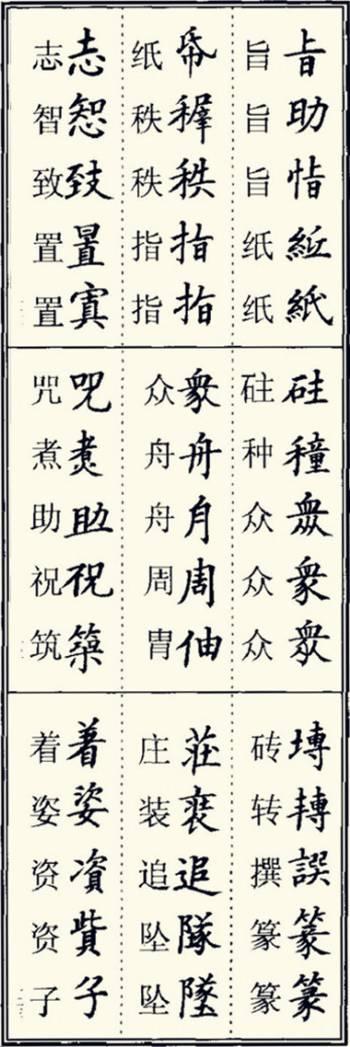 助恉紙
旨旨旨纸纸
帋秩指指
纸秩秩指指
志致置寘
志智致置置
砫穜眾衆眾
砫种众众众
衆舟月周伷
众舟舟周胄
呪煑助祝築
咒煮助祝筑
塼轉篆篆
砖转撰篆篆
莊追隊墜
庄装追坠坠
着姿資貲子
着姿资资子